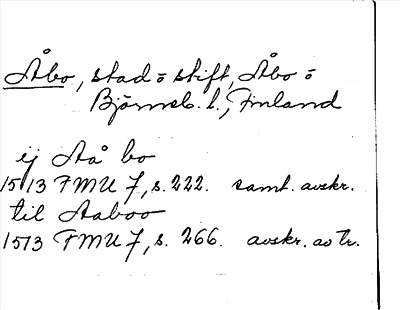 Åbo, stad o stift, Åbo o
Björneb. l., Finland
ej Aå bo
1513 FMU 7, s. 222. samt. avskr.
til Aaboo
1513 FMU 7, s. 266. avskr. av tr.